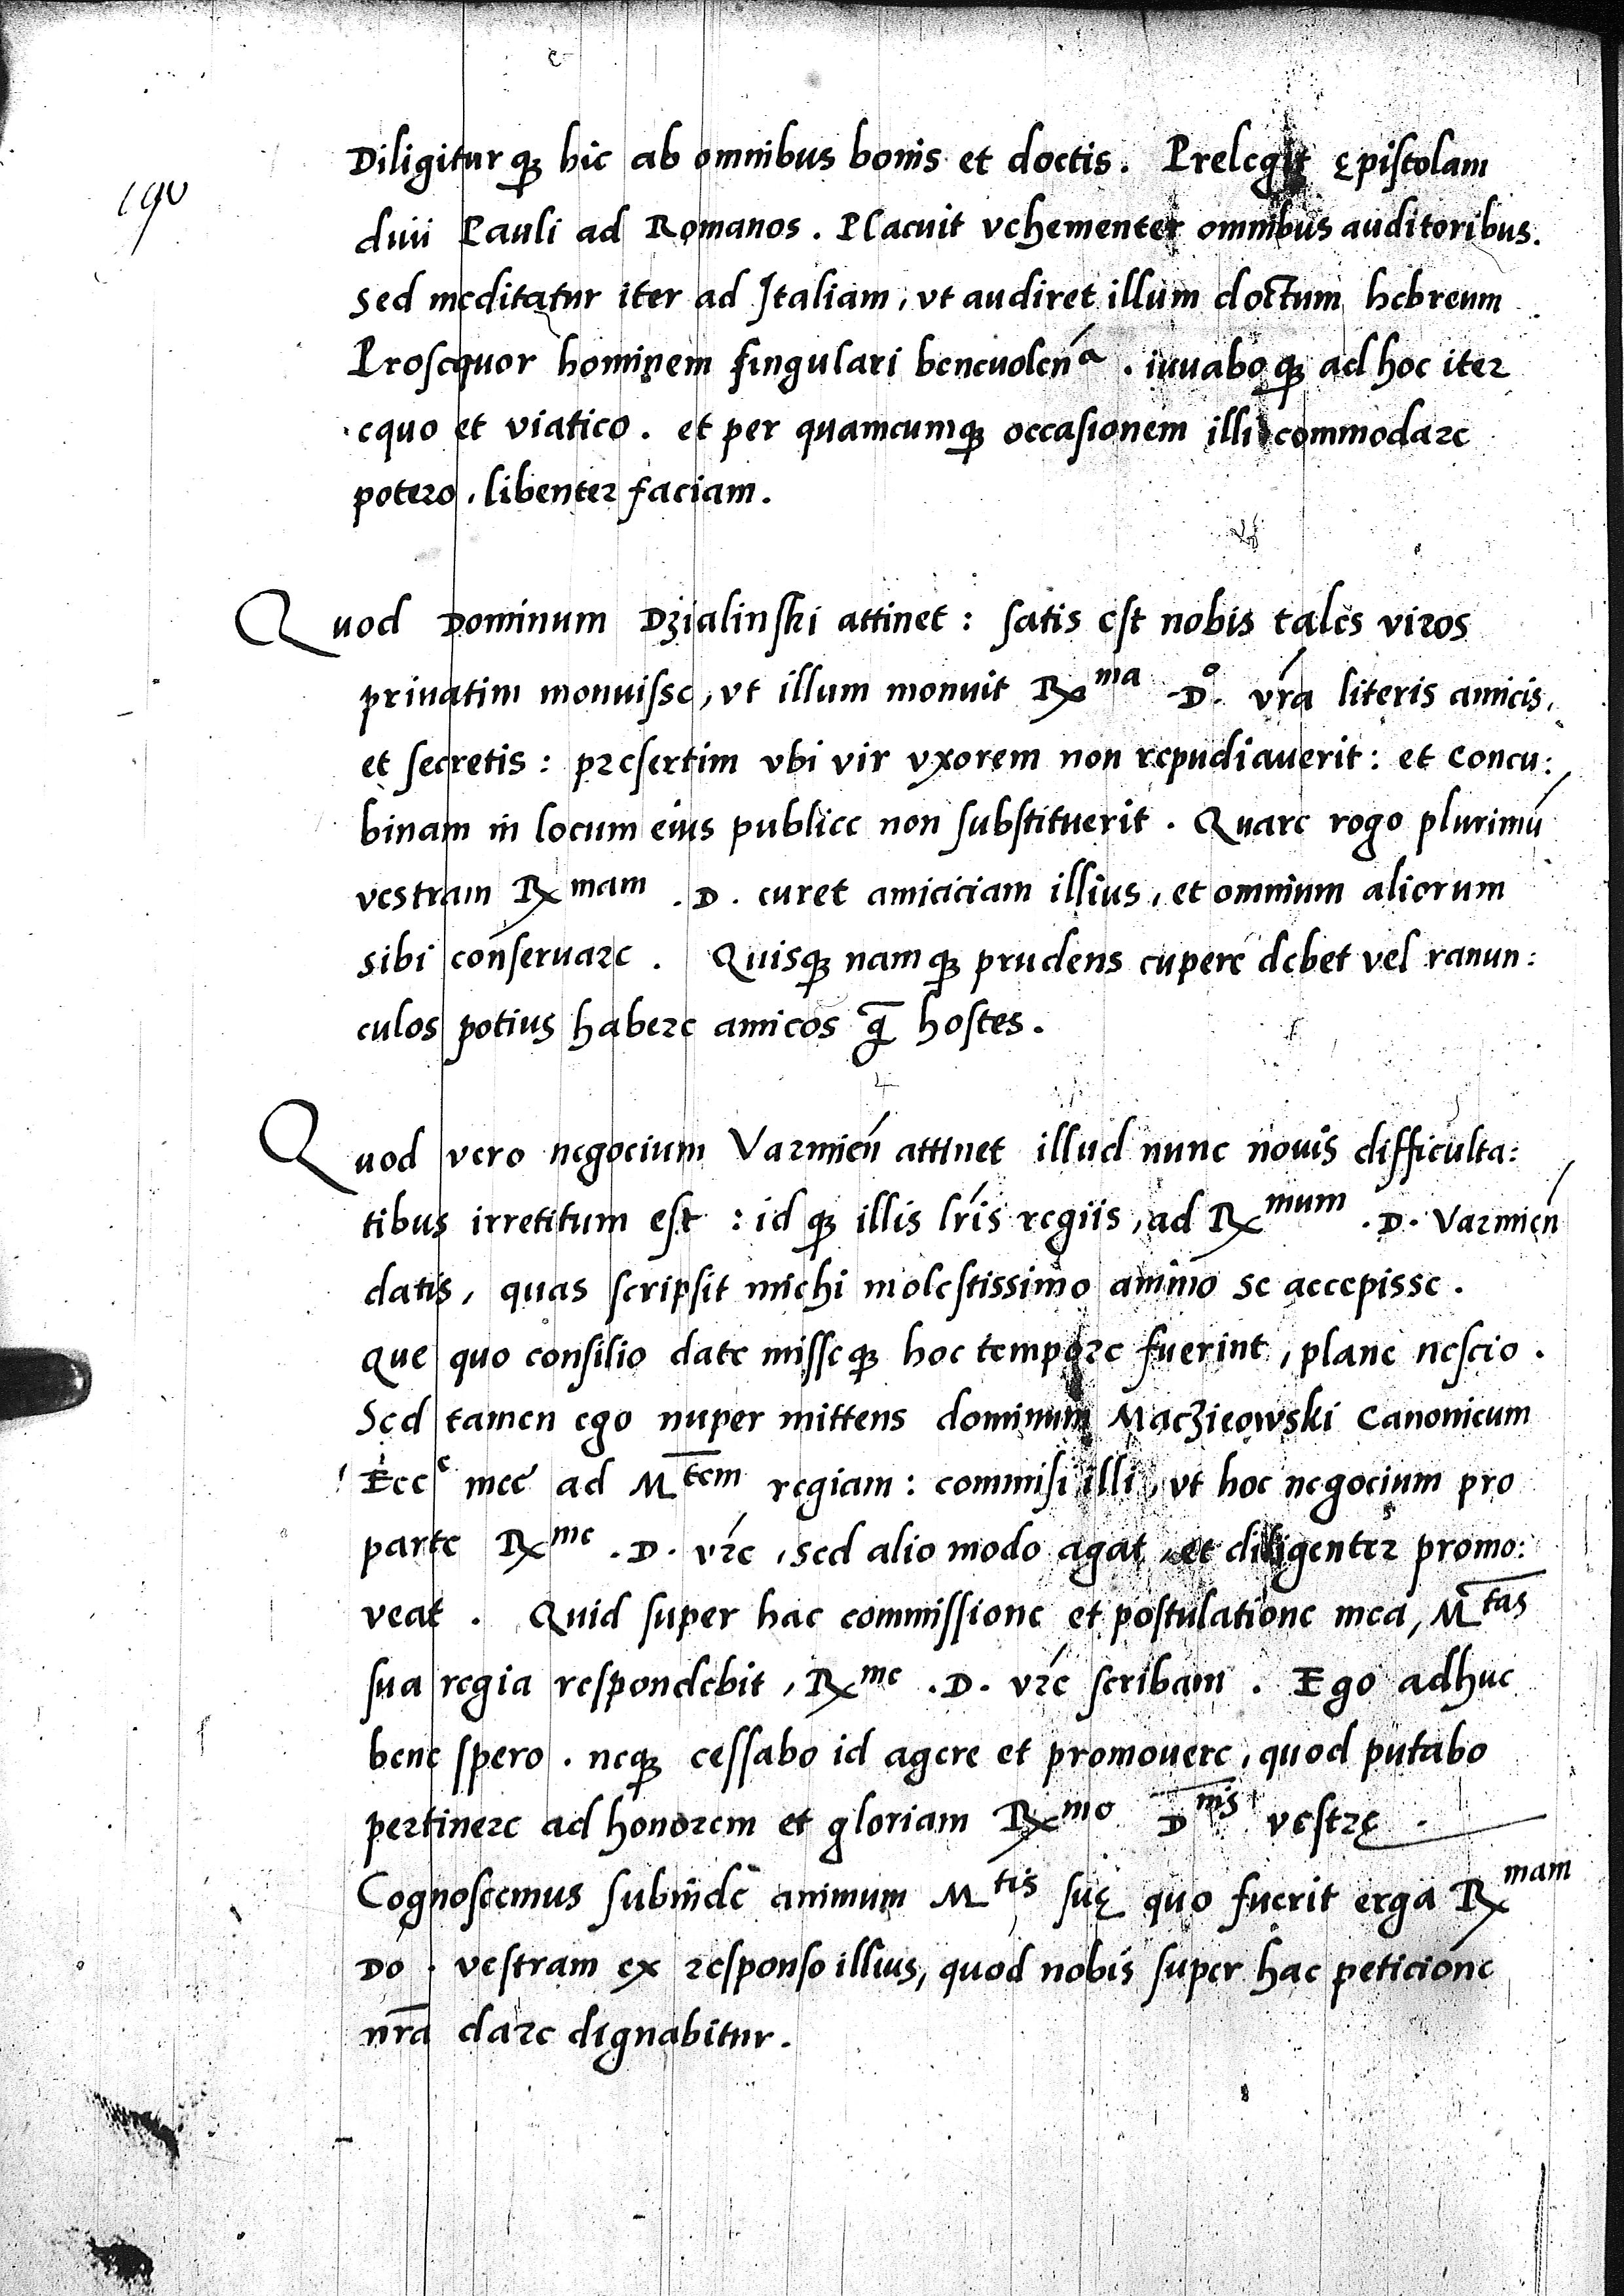 190
Diligitur qꝫ hic ab omnibus bonis et doctis. Prelegit ępistolam
diui Pauli ad Romanos. Placuit vehementer omnibus auditoribus.
Sed meditatur iter ad Italiam, vt audiret illum doctum hebreum
Prosequor hominem singulari beneuolen̄ᵃ. iuuabo qꝫ ad hoc iter
equo et viatico. et per quamcumqꝫ occasionem illi commodare
potero, libenter faciam.
Quod Dominum Dzialinski attinet: satis est nobis tales viros
priuatim monuisse, vt illum monuit Rᵐᵃ .D°. vr̄a literis amicis,
et secretis: presertim vbi vir vxorem non repudiauerit: et concu:
binam in locum eius publice non substituerit. Quare rogo plurimū
vestram Rᵐᵃᵐ .D. curet amiciciam illius, et omnium aliorum
sibi conseruare. Quisqꝫ namqꝫ prudens cupere debet vel ranun:
culos potius habere amicos q̄ hostes.
Quod vero negocium Varmien̄ attinet illud nunc nouis difficulta:
tibus irretitum est: id qꝫ illis lr̄is regiis, ad Rᵐᵘᵐ .D. Varmien̄
datis, quas scripsit michi molestissimo animo se accepisse.
Que quo consilio date misseqꝫ hoc tempore fuerint, plane nescio.
Sed tamen ego nuper mittens dominum Maczieowski Canonicum
Eccᵉ meę ad Mᵗᵉᵐ regiam: commisi illi, vt hoc negocium pro
parte Rᵐᵉ .D. vr̄e, sed alio modo agat, et diligenter promo:
veat. Quid super hac commissione et postulatione mea, Mᵗᵃˢ
sua regia respondebit, Rᵐᵉ .D. vr̄e scribam. Ego adhuc
bene spero. neqꝫ cessabo id agere et promouere, quod putabo
pertinere ad honorem et gloriam Rᵐᵒ Dⁿⁱˢ vestrę.
Cognoscemus subinde animum Mᵗⁱˢ suę quo fuerit erga Rᵐᵃᵐ
Do. vestram ex responso illius, quod nobis super hac peticione
nr̄a dare dignabitur.